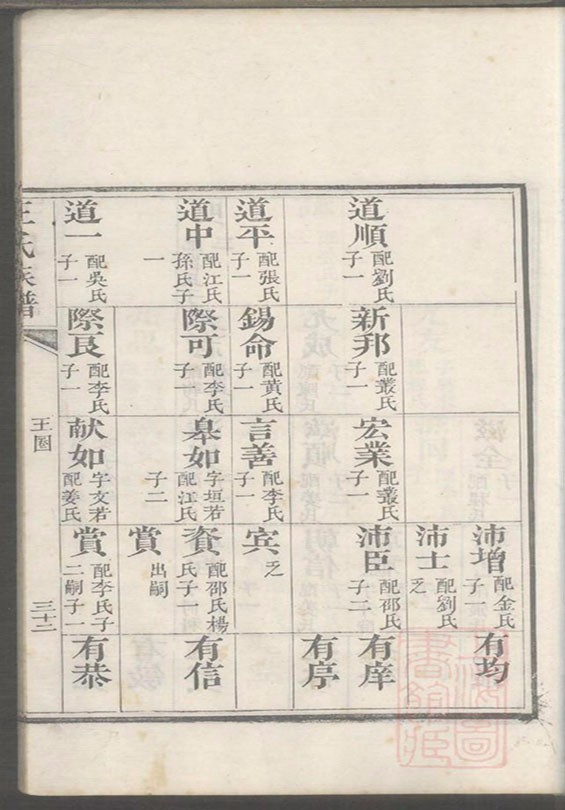 道順 配劉氏子一
道平 配張氏子一
道中 配江氏孫氏子一
道一 配吳氏子一
新邦 配叢氏子一
錫命 配黄氏子一
際可 配李氏子一
際艮 配李氏子一
宏業 配叢氏子一
言善 配李氏子一
皋如 字垣若配江氏子二
献如 字文若配姜氏
沛增 配金氏子一
沛士 配劉氏乏
沛臣 配邵氏子二
宾 乏
賚 配邵氏楊氏子一
賞 出嗣
賞 配李氏子二嗣子一
有均
有庠
有序
有信
有恭
王氏族譜
王圈
三十二